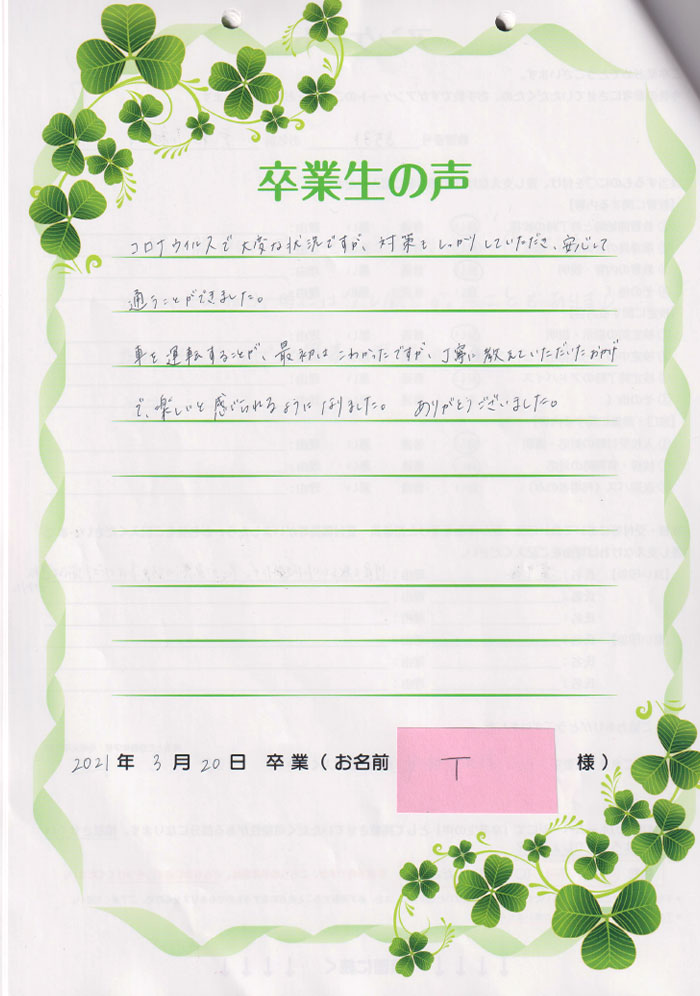 卒業生の声
コロナウイルスで大変な状況ですが、対策をしっかりしていただき、安心して
通うことができました。
車を運転することが、最初はこわかったですが、丁寧に教えていただいたおかげ
で、楽しいと感じられるようになりました。 ありがとうございました。
2021年 3月 20日 卒業(お名前 T 様)